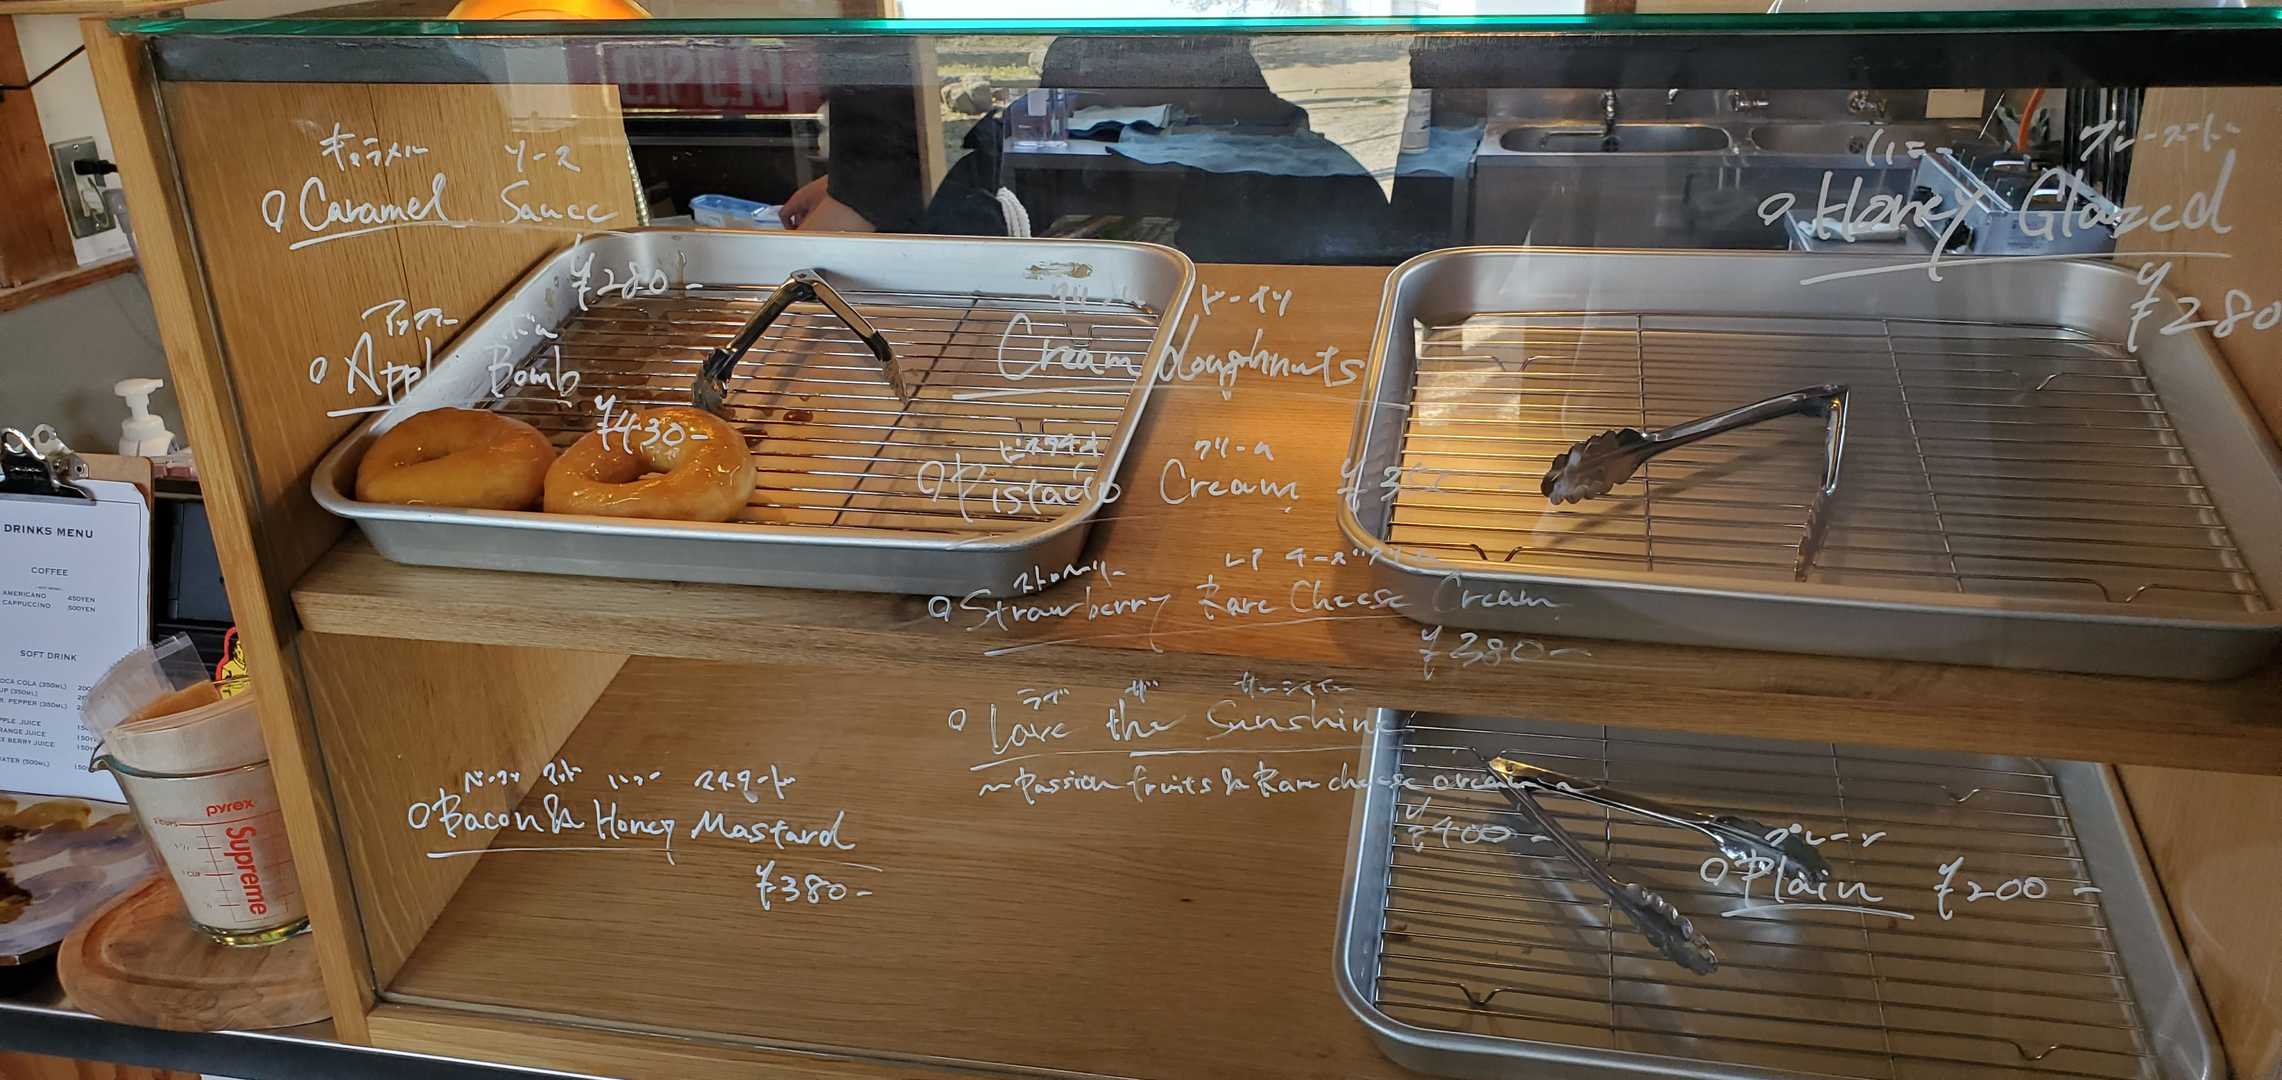 キャラメル ソース
Caramel Sauce
¥280-
アップル ボム
Apple Bomb
¥430-
ハニー グレーズド
Honey Glazed
¥280
クリーム ドーナツ
Cream doughnuts
ピスタチオ クリーム
Pistacio Cream
ストロベリー レア チーズクリーム
Strawberry Rare Cheese Cream
¥380-
ラブ ザ サンシャイン
Love the Sunshine
~Passion fruits & Rare cheese cream~
¥400-
ベーコン アンド ハニー マスタード
Bacon & Honey Mastard
¥380-
プレーン
Plain ¥200-
DRINKS MENU
COFFEE
AMERICANO 450YEN
CAPPUCCINO 500YEN
SOFT DRINK
OCA COLA (350ML)
UP (350ML)
R. PEPPER (350ML)
PPLE JUICE
RANGE JUICE
BERRY JUICE
ATER (500ML)
pyrex
Supreme
1 CUP